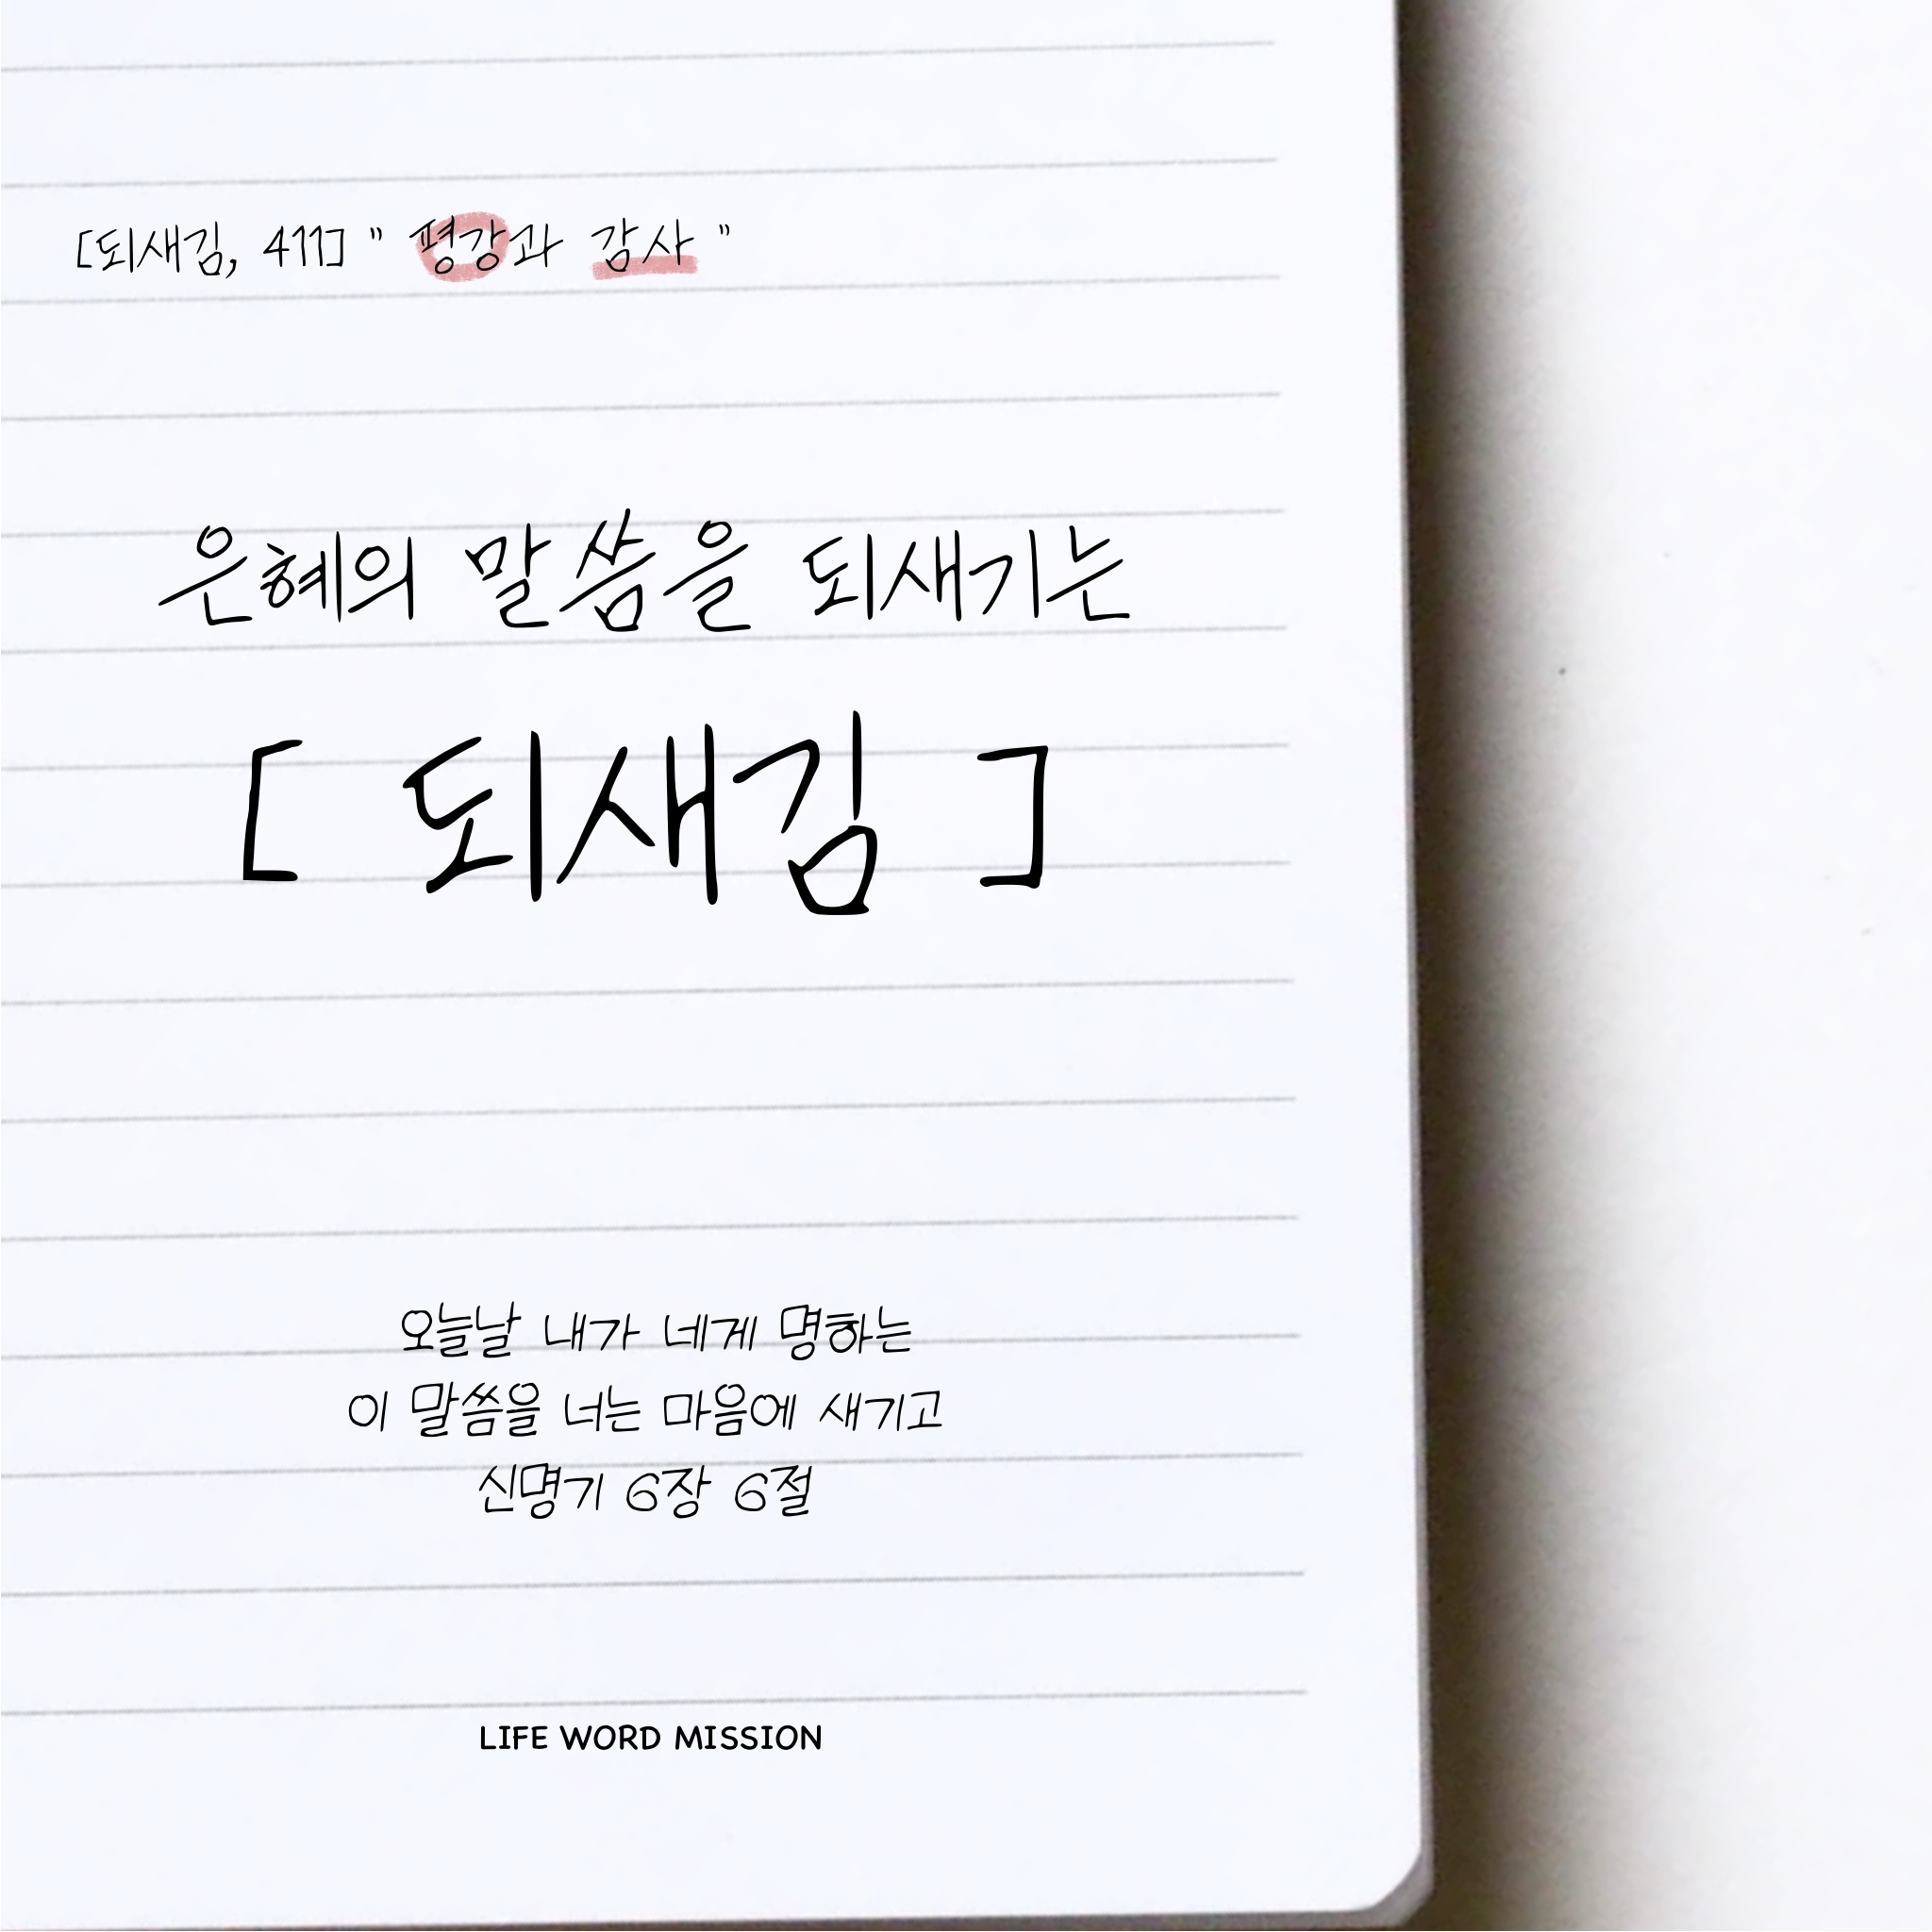 [되새김, 411] " 평강과 감사 "
은혜의 말씀을 되새기는
[ 되새김 ]
오늘날 내가 네게 명하는
이 말씀을 너는 마음에 새기고
신명기 6장 6절
LIFE WORD MISSION